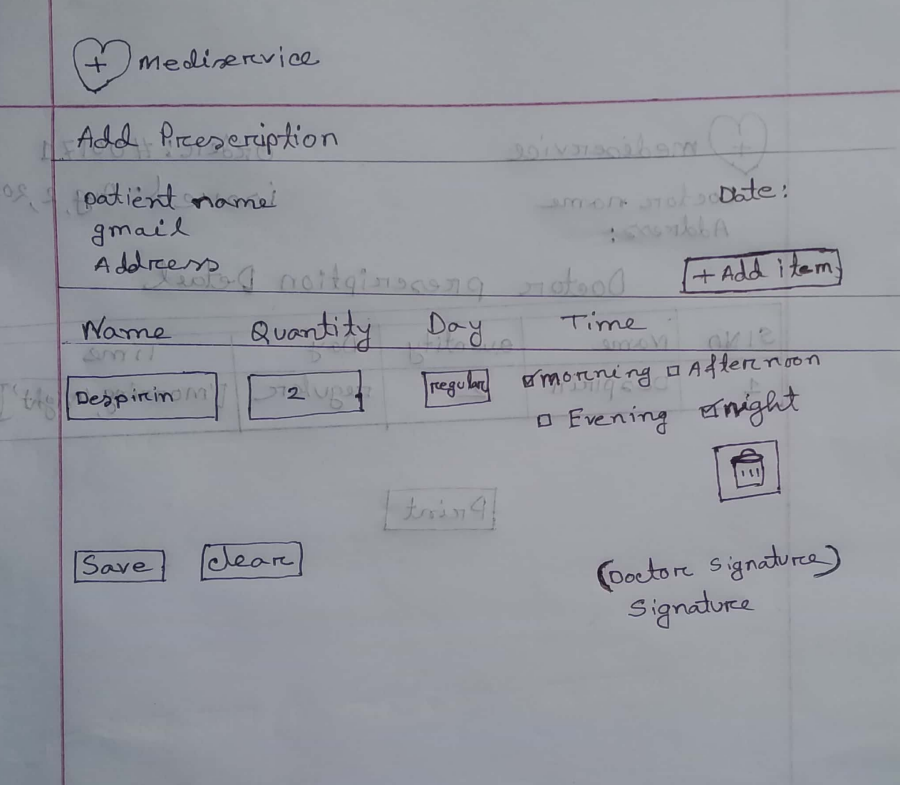 + mediservice
Add Prescription
patient name
Date:
gmail
:
Address
+ Add item
Name Quantity Day Time
Despirin 2 regular morning Afternoon
Evening night
Save clear
(Doctor signature)
Signature